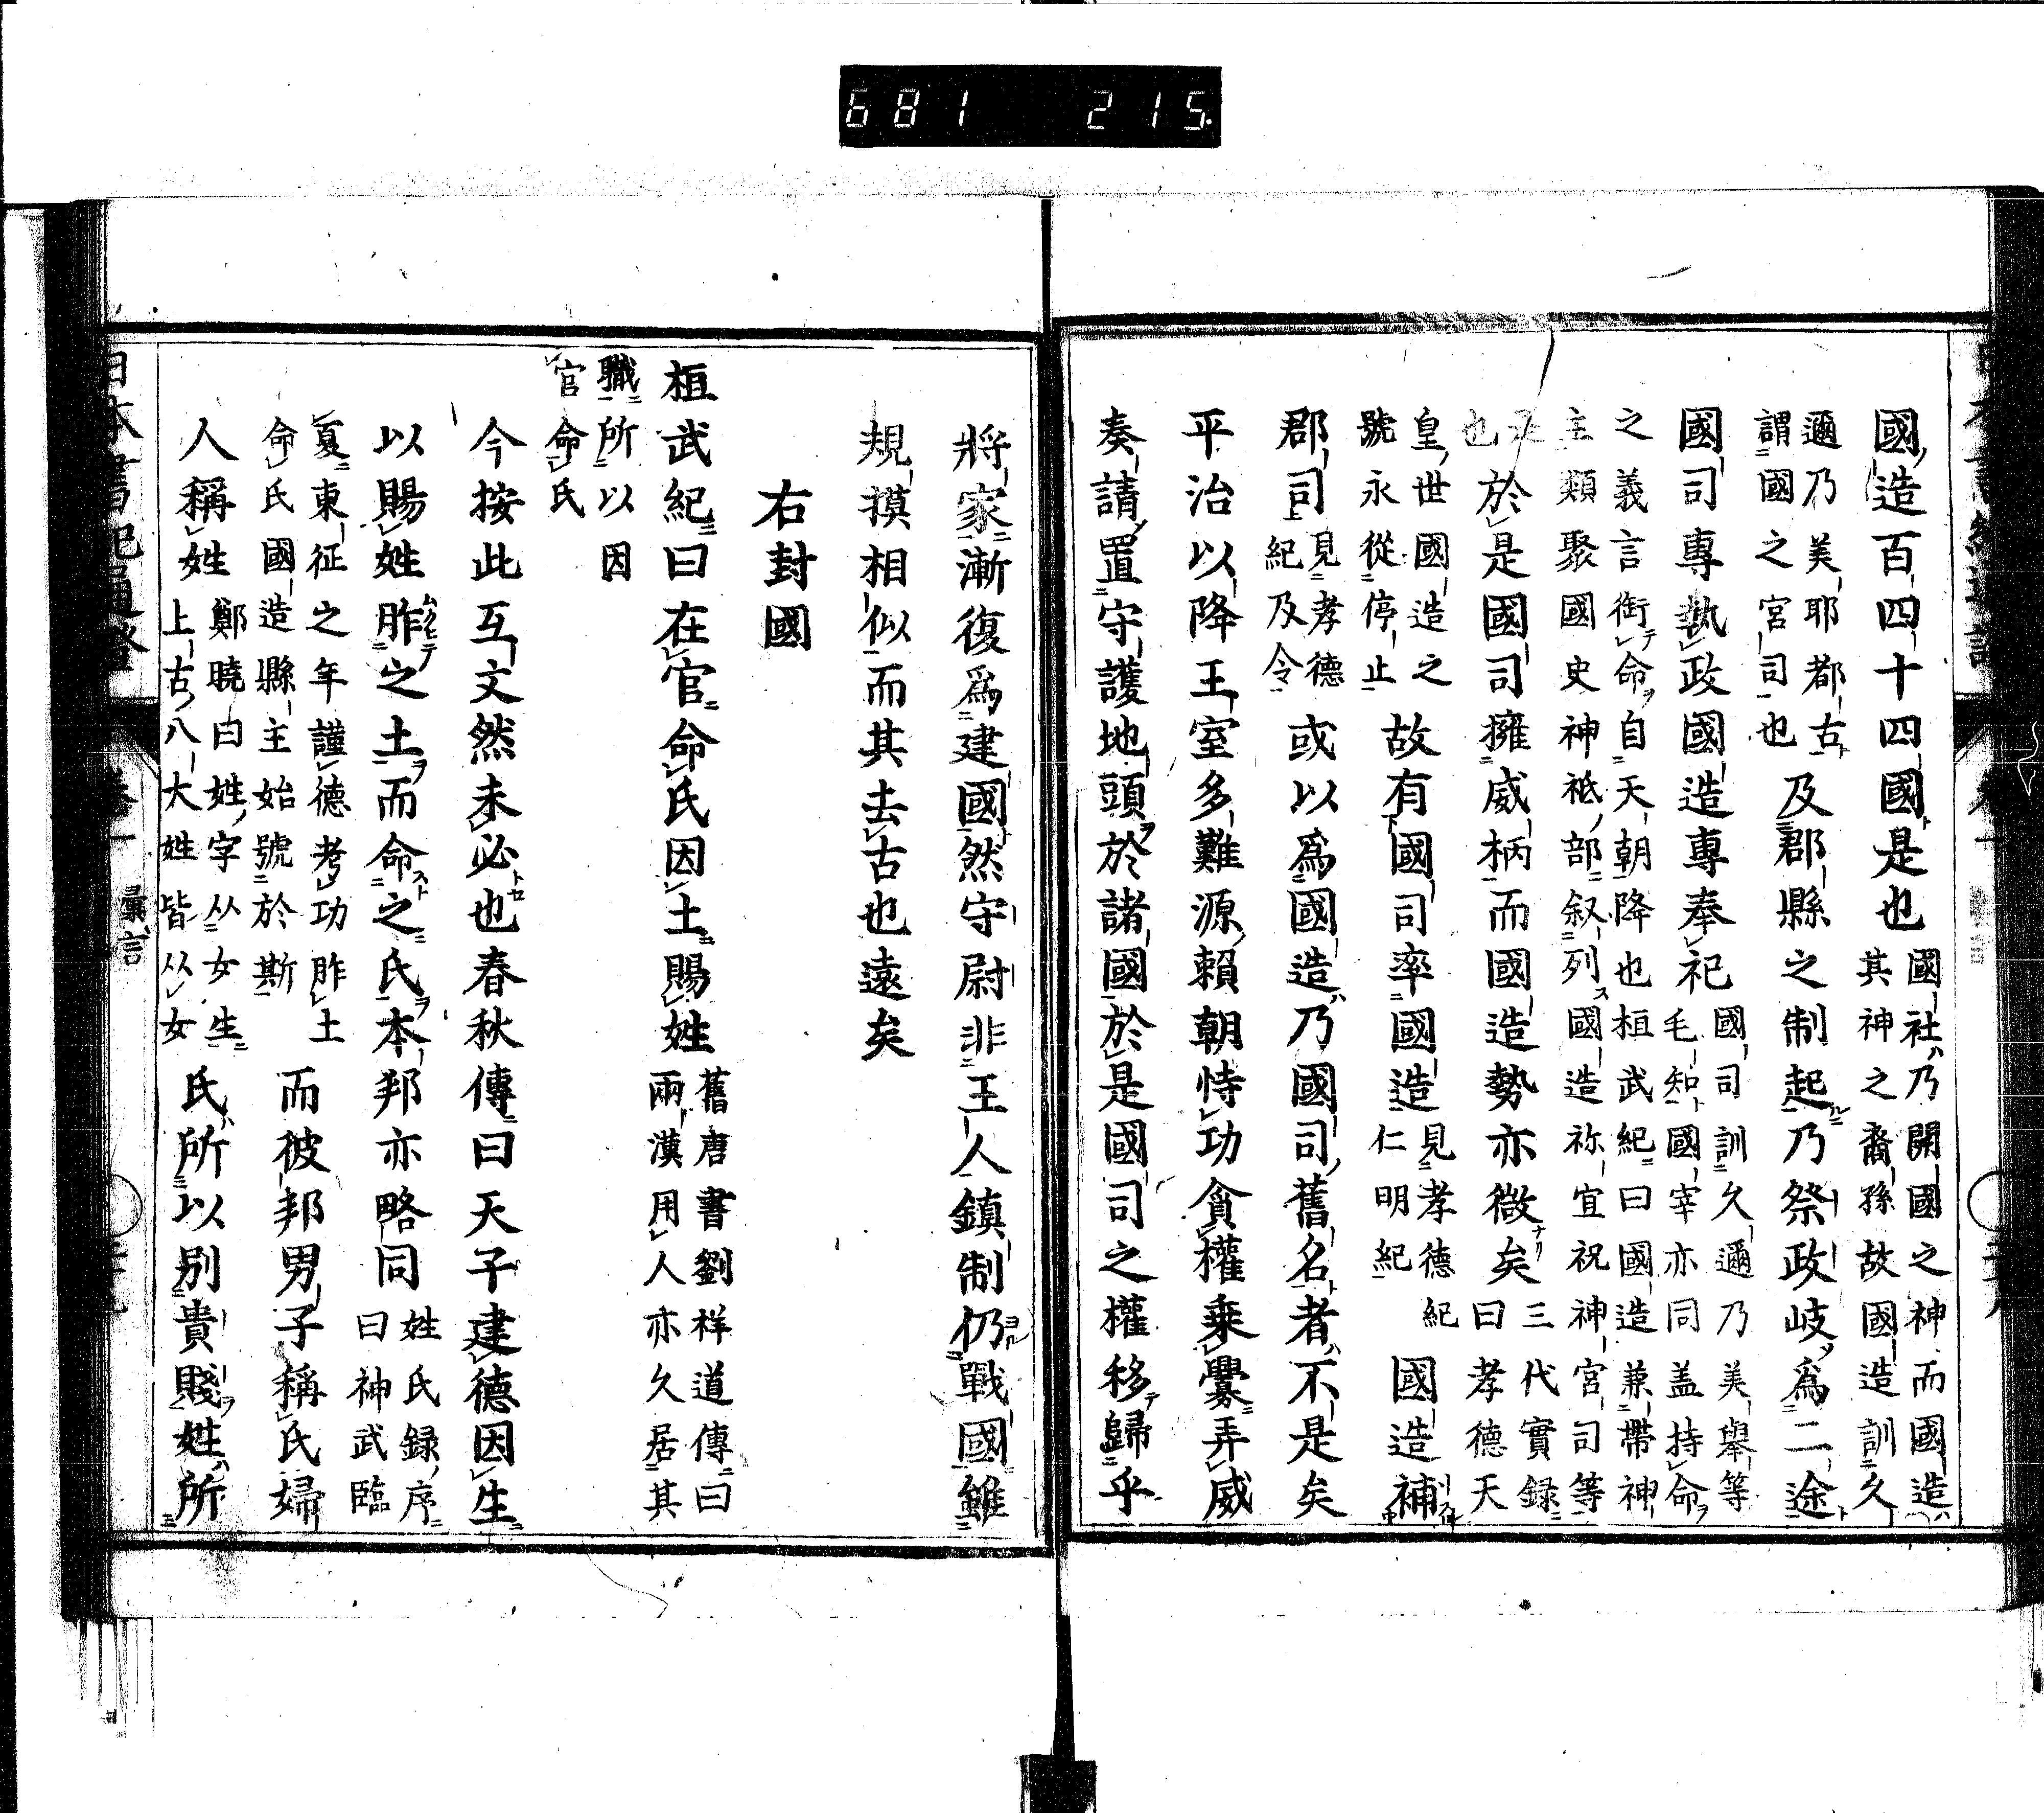 681 215
國造百四十四國是也 國社乃開國之神而國造
其神之裔孫故國造訓久
邇乃美耶都古
謂國之宮司也 及郡縣之制起乃祭政岐爲二途
國司專執政國造專奉祀 國司訓久邇乃美擧等
毛知國宰亦同盖持命
之義言銜命自天朝降也桓武紀曰國造兼帶神
主類聚國史神祇部叙列國造祢宜祝神宮司等
也 於是國司擁威柄而國造勢亦微矣 三代實録
曰孝德天
皇世國造之
號永從停止 故有國司率國造 見孝德紀
仁明紀 國造補
郡司 見孝德
紀及令 或以爲國造乃國司舊名者不是矣
平治以降王室多難源賴朝恃功貪權乗釁弄威
奏請置守護地頭於諸國於是國司之權移歸乎
將家漸復爲建國然守尉非王人鎮制仍戰國雖
規摸相似而其去古也遠矣
右封國
桓武紀曰在官命氏因土賜姓 舊唐書劉祥道傳曰
兩漢用人亦久居其
職所以因
官命氏
今按此互文然未必也春秋傳曰天子建德因生
以賜姓胙之土而命之氏本邦亦略同 姓氏録序
曰神武臨
夏東征之年謹德考功胙土
命氏國造縣主始號於斯 而彼邦男子稱氏婦
人稱姓 鄭曉曰姓字从女生
上古八大姓皆从女 氏所以别貴賤姓所
日本書紀通證 卷一 彙言